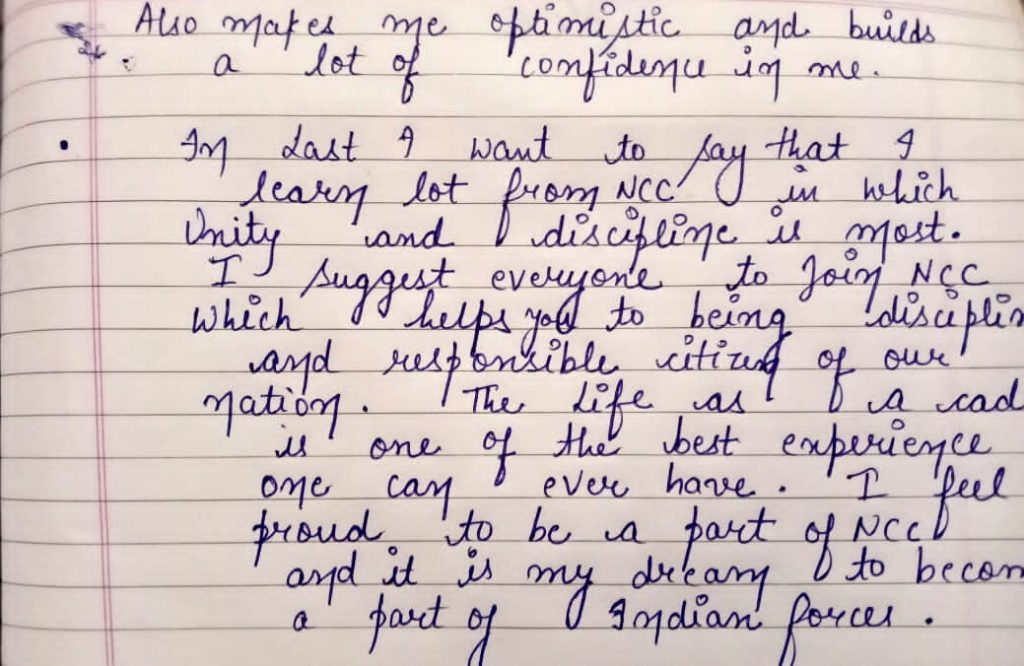 Also makes me optimistic and builds
a lot of confidence in me.
In Last I want to say that I
learn lot from NCC in which
Unity and discipline is most.
I suggest everyone to Join NCC
which helps you to being disciplin
and responsible citizen of our
nation. The Life as a cad
is one of the best experience
one can ever have. I feel
proud to be a part of NCC
and it is my dream to becom
a part of Indian forces.